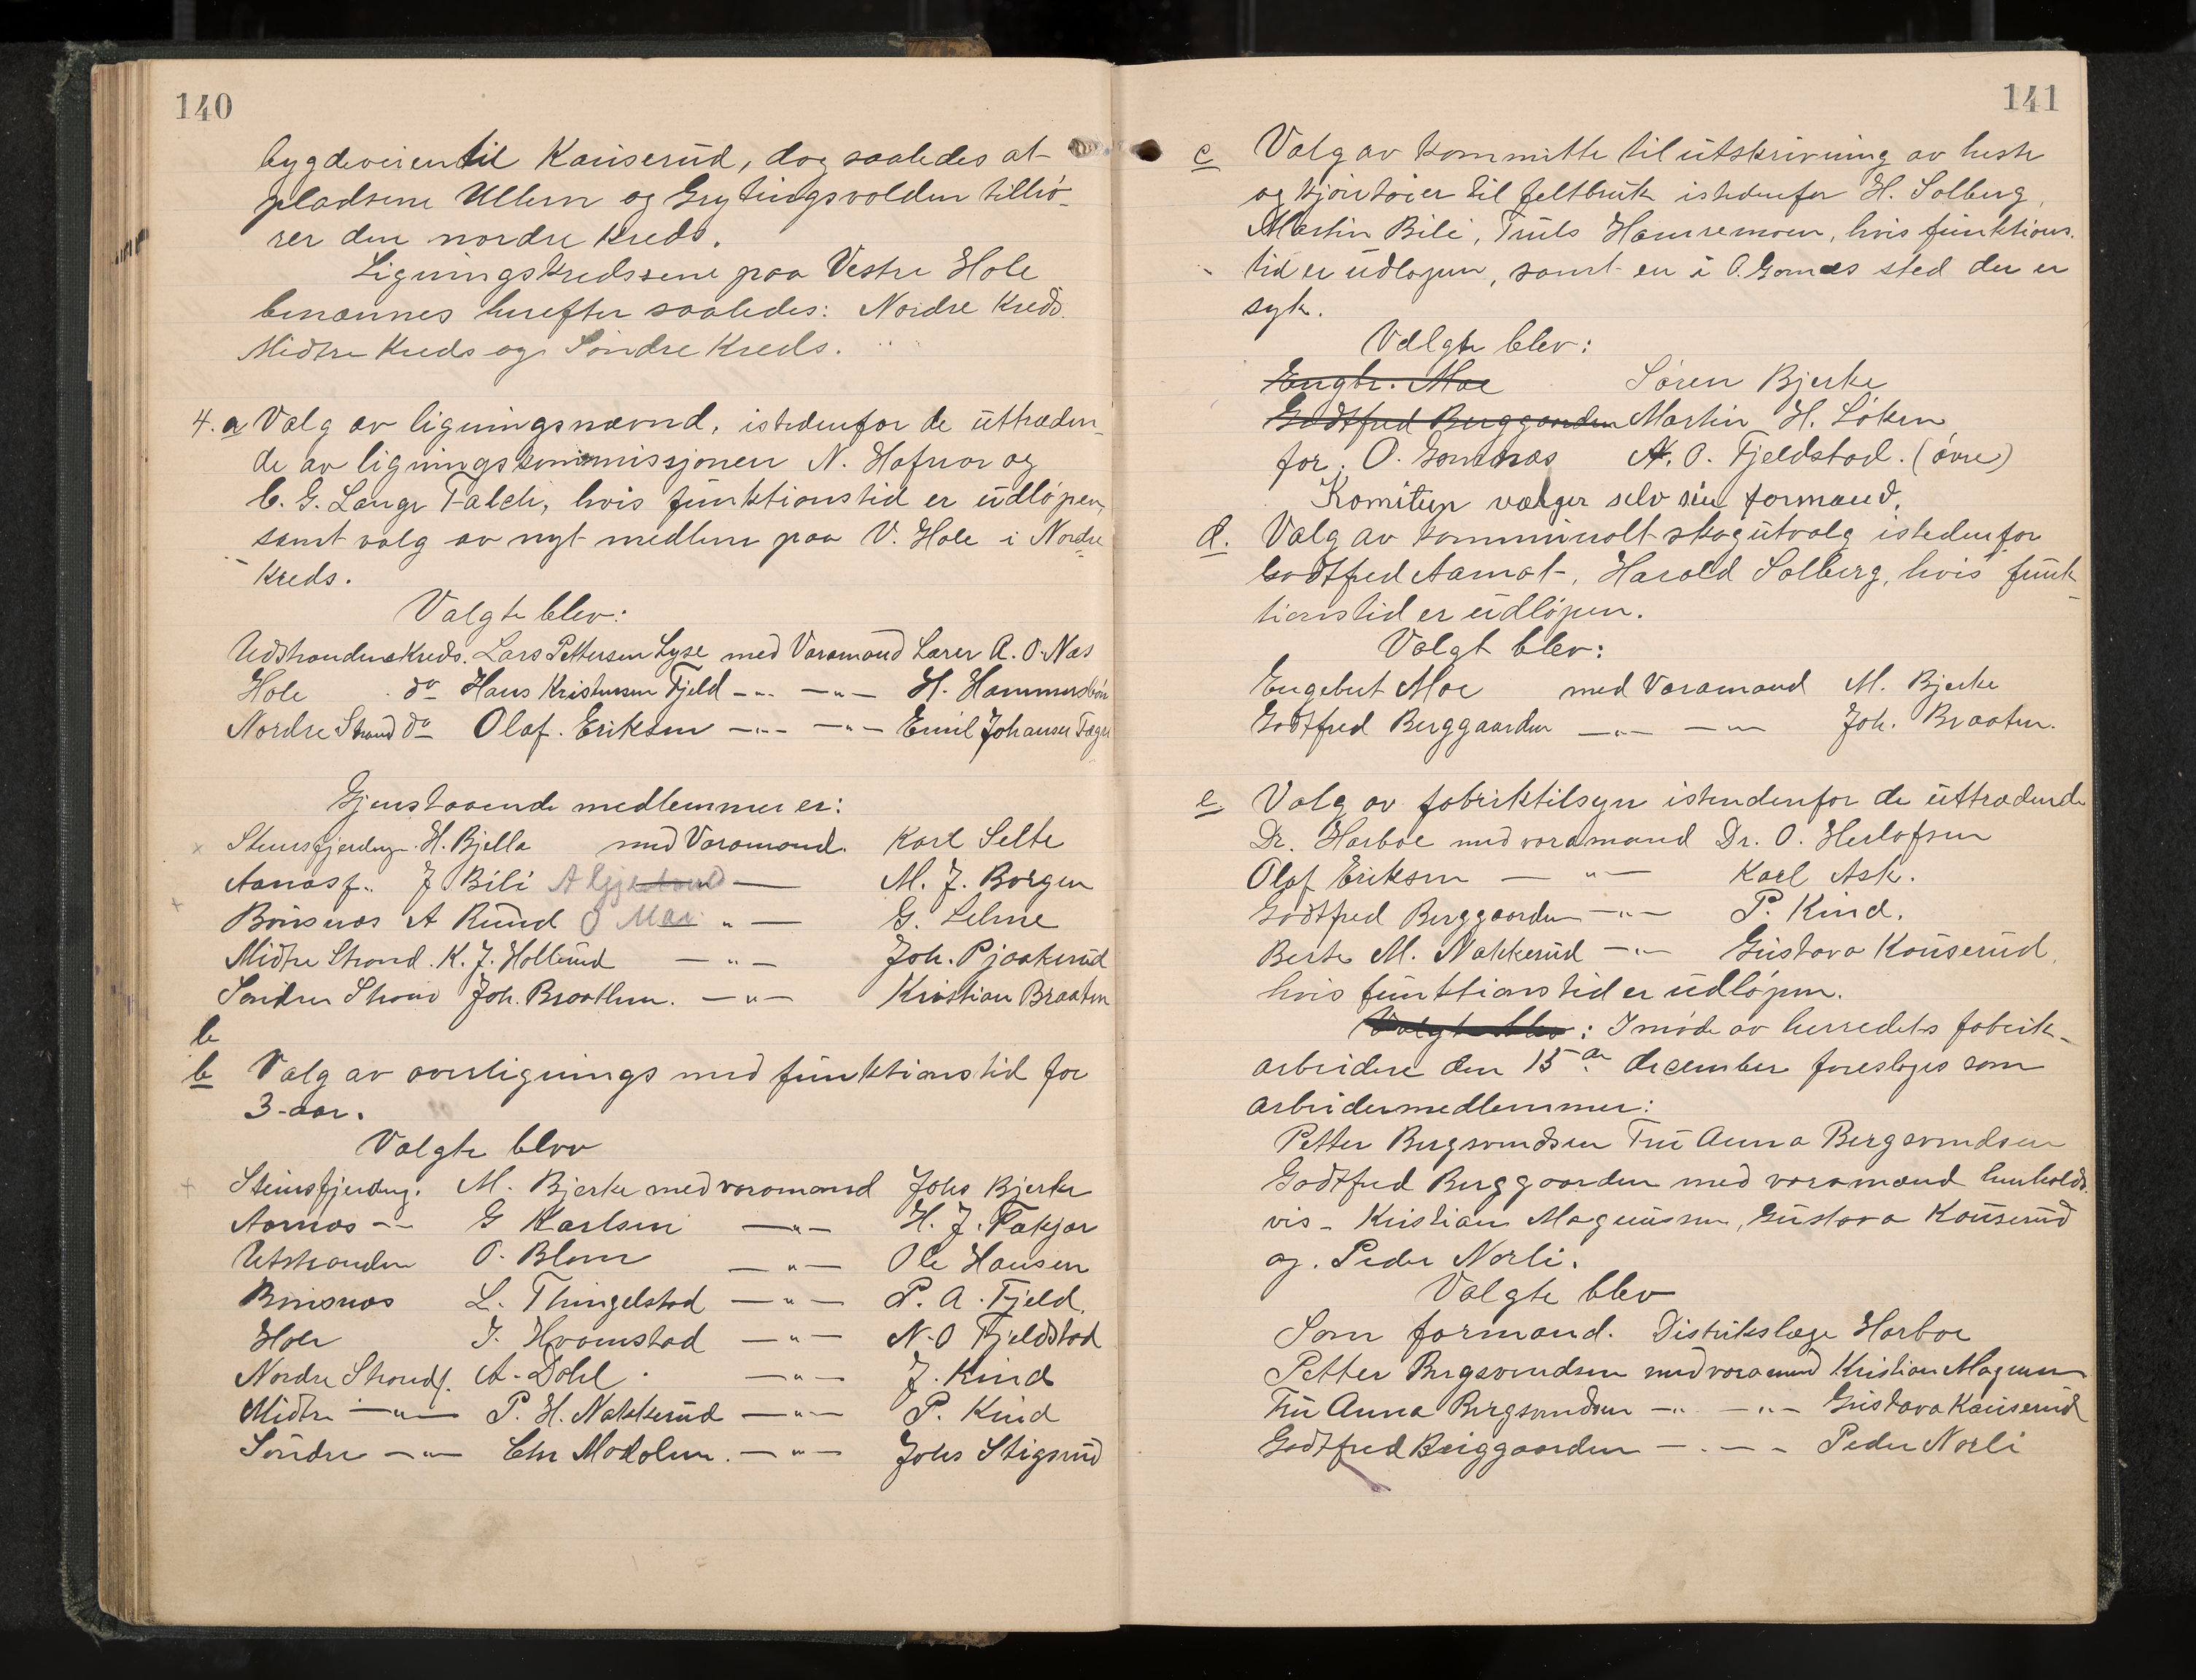 140
bygdeveien til Kauserud, dog saaledes at
pladsene Ullern og Grytingsvolden tilhö-
rer den nordre kreds.
Ligningskredsene paa Vestre Hole
benævnes herefter saaledes: Nordre Kreds.
Midtre Kreds og Söndre Kreds.
4. a Valg av ligningsnævnd, istedenfor de uttræden-
de av ligningskommissjonen N. Hafnor og
C. G. Lange Falch, hvis funktionstid er udlöpen,
samt valg av nyt medlem paa V. Hole i Nordre
Kreds.
Valgte blev:
Udstrandens Kreds. Lars Pettersen Lyse med Varamand Lærer A. O. Næs
Hole do Hans Kristensen Fjeld -"- -"- H. Hammersbön
Nordre Strand do Olaf Eriksen -"- -"- Emil Johansen
Gjenstaaende medlemmer er:
Stensfjerding. H. Bjella med Varamand. Karl Selte
Aanasf. J Bili M. J. Borgen
Bönsnæs A Rund O Moe " — G. Lehne
Midtre Strand. K. J. Hollerud — " — Joh. Pjaakerud
Söndre Strand Joh. Braathen. — " — Kristian Braaten
b
b Valg av overlignings med funktionstid for
3-aar.
Valgte blev
Steinsfjerding. M. Bjerke med varamand Johs Bjerke
Aarnæs -"- G Karlsen — " — H. J. Fakjar
Utstranden O. Blom — " — Ole Hansen
Bönsnæs L. Thingelstad — " — P. A. Fjeld.
Hole J. Hvamstad — " — N. O Fjeldstad
Nordre Strandf. A. Dahl — " — J. Kind
Midtre — " — P. H. Nakkerud — " — P. Kind
Söndre — " — Chr Modalen. — " — Johs Stigsrud
141
c Valg av kommitte til utskrivning av heste
og kjöretöier til feltbruk istedenfor H. Solberg,
Martin Bili, Truls Hamremoen, hvis funktions-
tid er udlöpen, samt en i O. Gomnæs sted der er
syk.
Valgte blev:
Engbr. Moe Sören Bjerke
Godtfred Berggaarden Martin H. Löken
for O. Gomnæs N. O. Fjeldstad. (övre)
Komiteen vælger selv sin formand.
d. Valg av kommunalt skogutvalg istedenfor
Godtfred Aamot, Harald Solberg, hvis funk-
tionstid er udlöpen.
Valgt blev:
Engebret Moe med Varamand M. Bjerke
Godtfred Berggaarden — " — — " — Joh. Braaten.
e Valg av fabriktilsyn istendenfor de uttrædende
Dr. Harboe med varamand Dr. O. Herlofsen
Olaf Eriksen — " — Karl Ask.
Godtfred Berggaarden — " — P. Kind.
Berte M. Nakkerud — " — Gustava Kauserud,
hvis funktionstid er udlöpen.
Valgte blev: I möde av herredets fabrik-
arbeidere den 15de december foresloges som
arbeidermedlemmer:
Petter Bergsvendsen Fru Anna Bergsvendsen
Godtfred Berggaarden med varamænd henholds-
vis - Kristian Magnussen, Gustava Kauserud
og Peder Norli.
Valgte blev
Som formand. Distrikslæge Harboe
Petter Bergsvendsen med varamand Kristian Magnussen
Fru Anna Bergsvendsen -"- -"- Gustava Kauserud
Godtfred Berggaarden — " — - Peder Norli